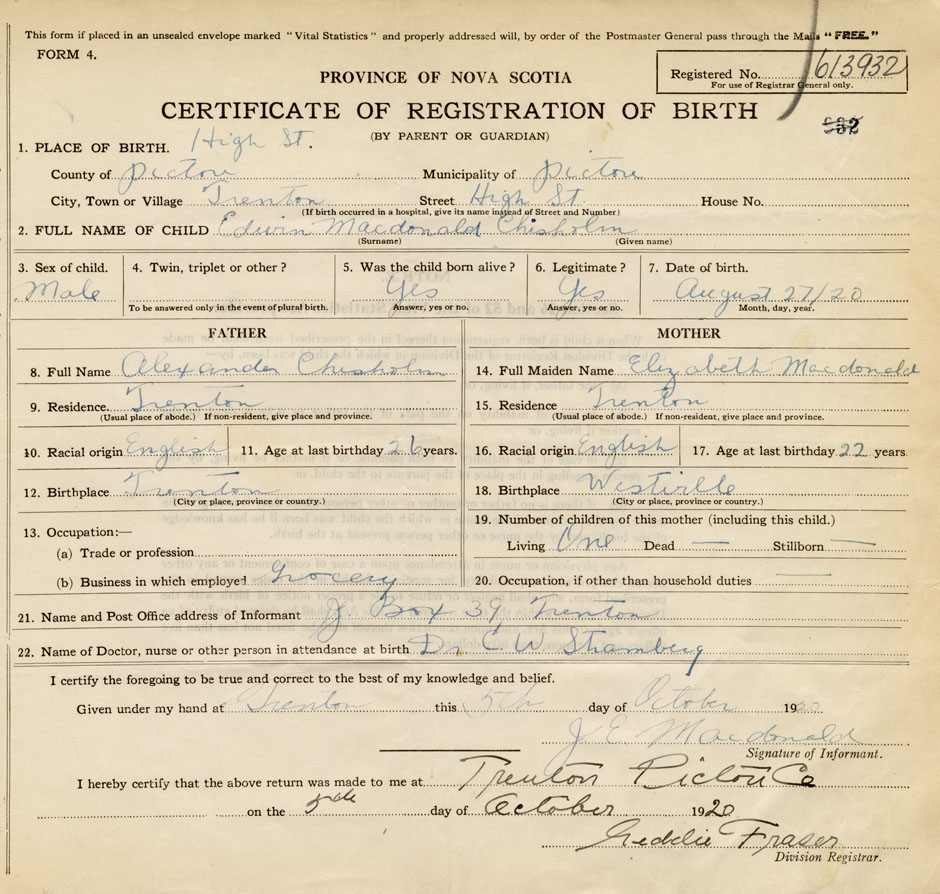 This form if placed in an unsealed envelope marked "Vital Statistics" and properly addressed will, by order of the Postmaster General pass through the Mails "FREE."
FORM 4.
Registered No. 613932
For use of Registrar General only.
PROVINCE OF NOVA SCOTIA
CERTIFICATE OF REGISTRATION OF BIRTH
(BY PARENT OR GUARDIAN)
1. PLACE OF BIRTH. High St.
County of Pictou Municipality of Pictou
City, Town or Village Trenton Street High St. House No.
(If birth occurred in a hospital, give its name instead of Street and Number)
2. FULL NAME OF CHILD Edwin Macdonald Chisholm
(Surname) (Given name)
3. Sex of child. 4. Twin, triplet or other? 5. Was the child born alive? 6. Legitimate? 7. Date of birth.
Male Yes Yes August 27/20
To be answered only in the event of plural birth. Answer, yes or no. Answer, yes or no. Month, day, year.
FATHER MOTHER
8. Full Name Alexander Chisholm 14. Full Maiden Name Elizabeth Macdonald
9. Residence. Trenton 15. Residence Trenton
(Usual place of abode.) If non-resident, give place and province. (Usual place of abode.) If non-resident, give place and province.
10. Racial origin English 11. Age at last birthday 26 years. 16. Racial origin English 17. Age at last birthday 22 years
12. Birthplace Trenton 18. Birthplace Westville
(City or place, province or country.) (City or place, province or country.)
13. Occupation:— 19. Number of children of this mother (including this child.)
(a) Trade or profession Living One Dead — Stillborn —
(b) Business in which employed Grocery 20. Occupation, if other than household duties —
21. Name and Post Office address of Informant Box 39, Trenton
22. Name of Doctor, nurse or other person in attendance at birth Dr. C. W. Stramberg
I certify the foregoing to be true and correct to the best of my knowledge and belief.
Given under my hand at Trenton this 5th day of October 1920
J. E. Macdonald
Signature of Informant.
I hereby certify that the above return was made to me at Trenton Pictou Co
on the 5th day of October 1920
Geddie Fraser
Division Registrar.